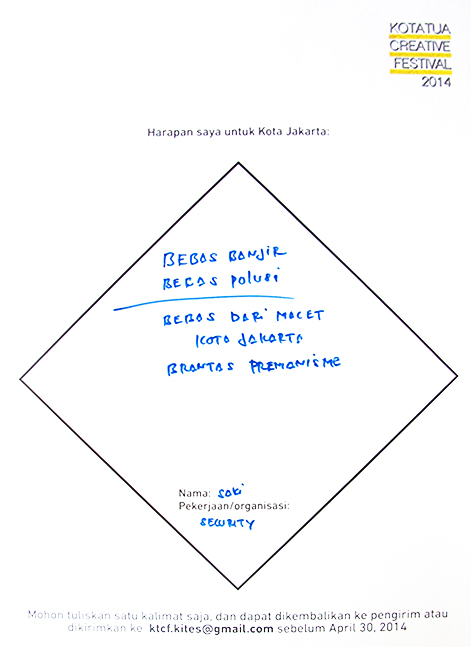 KOTATUA
CREATIVE
FESTIVAL
2014
Harapan saya untuk Kota Jakarta:
BEBAS BANJIR
BEBAS POLUSI
BEBAS DARI MACET
KOTA JAKARTA
BRANTAS PREMANISME
Nama: SAKI
Pekerjaan/organisasi:
SECURITY
Mohon tuliskan satu kalimat saja, dan dapat dikembalikan ke pengirim atau
dikirimkan ke ktcf.kites@gmail.com sebelum April 30, 2014